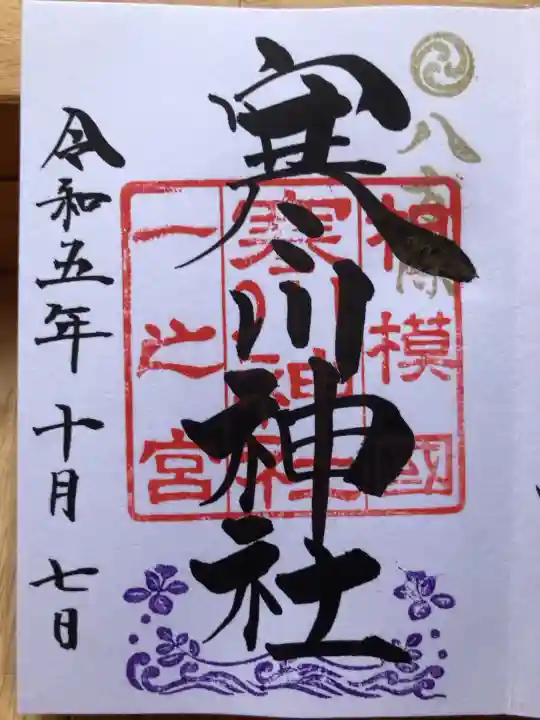 八方除
相模國
寒川神社
一之宮
寒川神社
令和五年十月七日